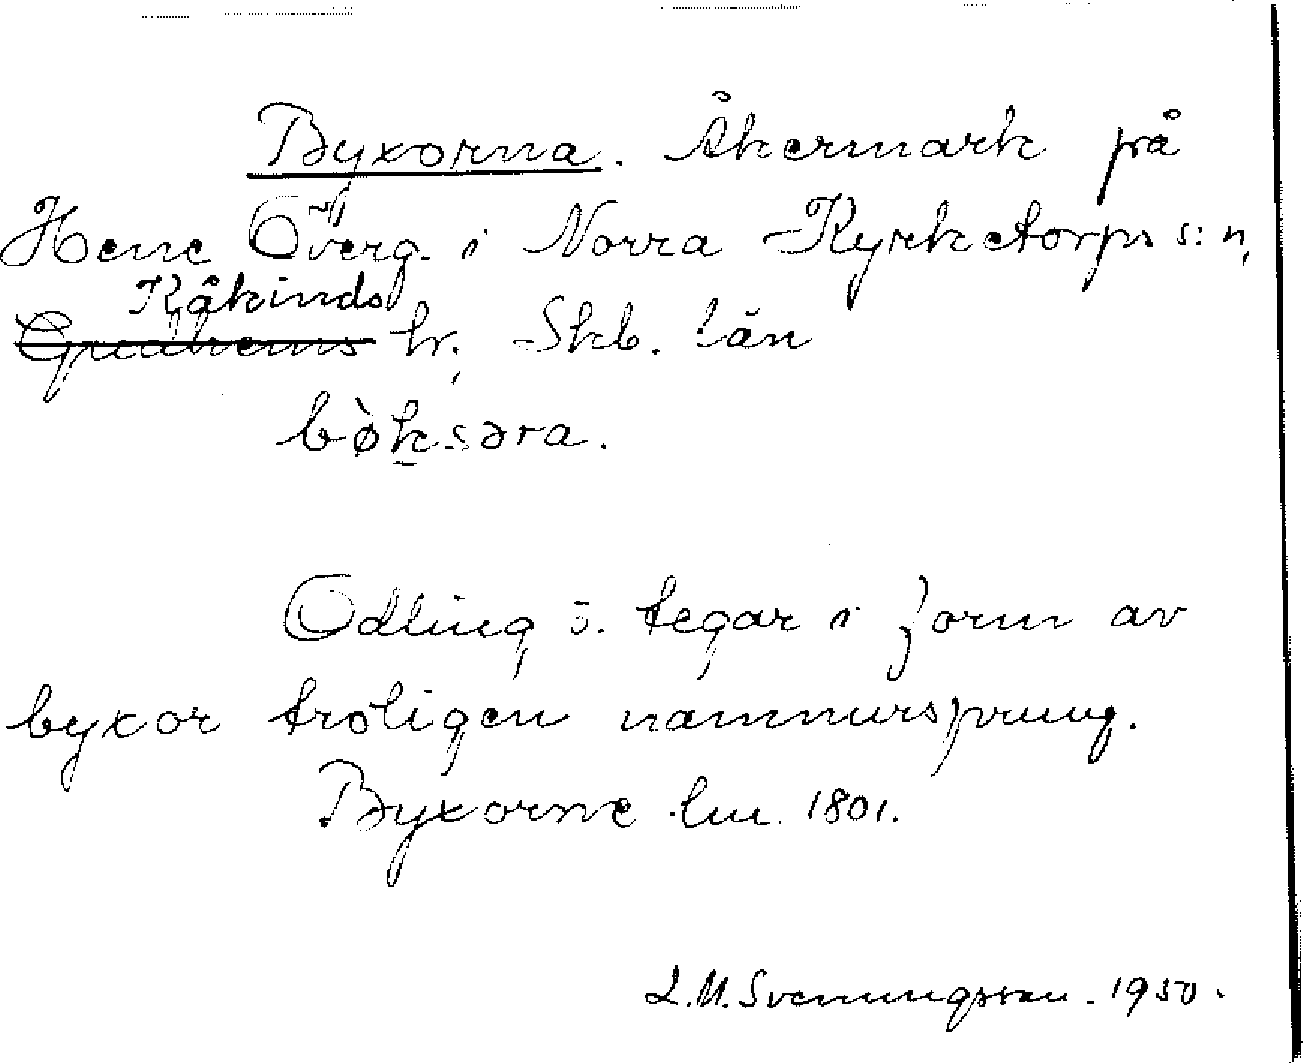 Byxorna. Åkermark på
Hene Överg. i Norra Kyrketorps s:n,
Kåkinds
Gudhems hr, Skb. län
bòksəra.
Odling ö. tegar i form av
byxor troligen namnursprung.
Byxorne lm. 1801.
L.M. Svenungsson. 1950.